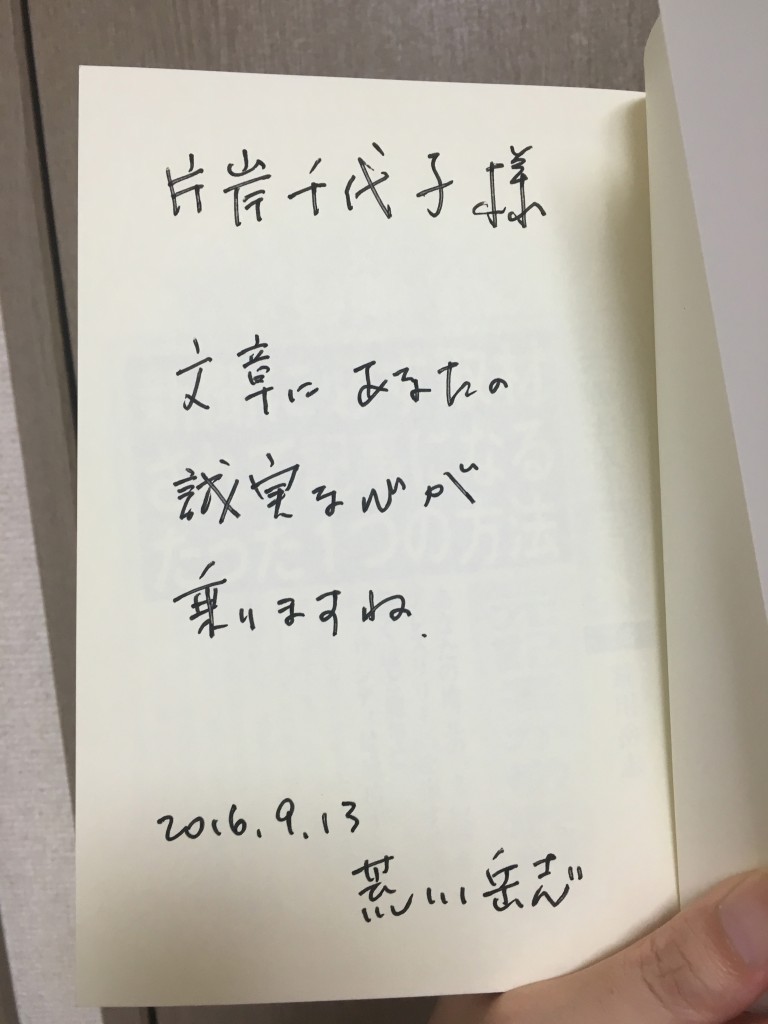 片岸千代子様
文章にあなたの
誠実な心が
乗りますね.
2016.9.13
荒川岳志